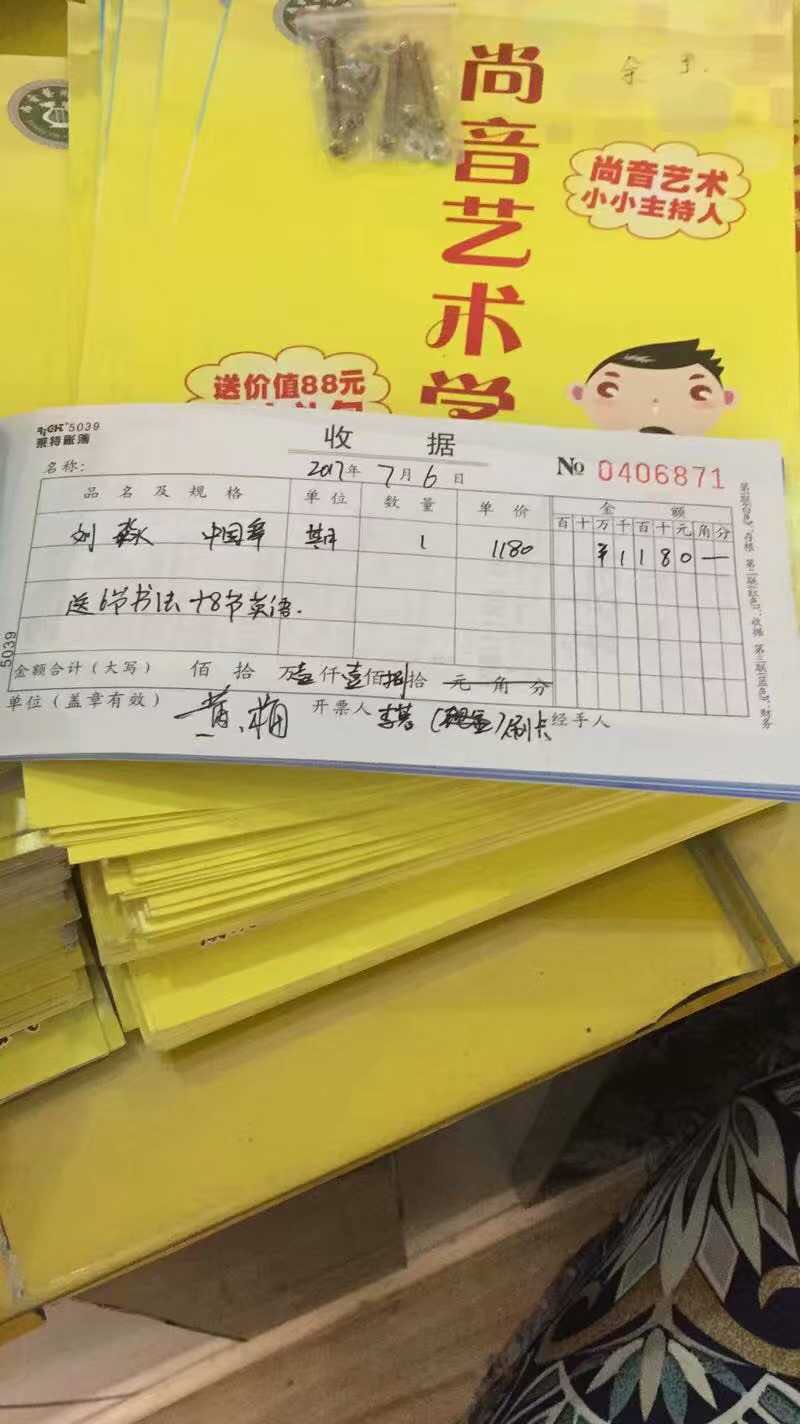 尚音艺术学
尚音艺术
小小主持人
送价值88元
5039
莱特账簿
收 据
名称:
2017年 7月 6日
No 0406871
品名及规格 单位 数量 单价 金额
百 十 万 千 百 十 元 角 分
刘 中国舞 期 1 1180 ¥1180—
送6节书法+8节英语.
5039
金额合计(大写) 佰 拾 万壹仟壹佰捌拾 元 角 分
单位(盖章有效) 黄梅 开票人 刷卡 经手人
第一联(白色):存根 第二联(红色):收据 第三联(蓝色):财务